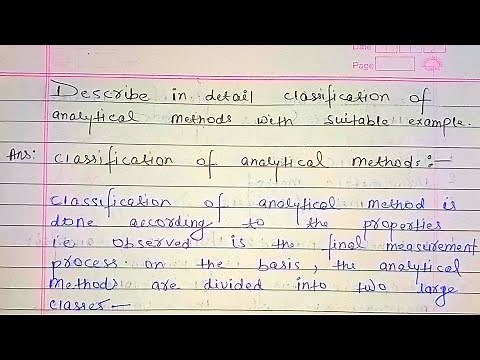 Date
Page
Describe in detail classification of
analytical methods with suitable example.
Ans: classification of analytical methods:-
classification of analytical method is
done according to the properties
i.e observed is the final measurement
process. on the basis, the analytical
methods are divided into two large
classes-